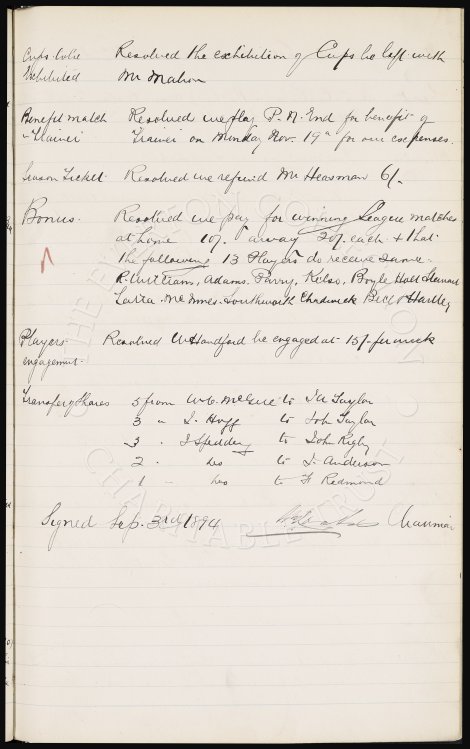 Cups to be Resolved the exhibition of Cups be left with
Exhibited Mr Mahon
Benefit match Resolved we play P. N. End for benefit of
Trainer Trainer on Monday Nov. 19th for our expenses.
Season Ticket. Resolved we refund Mr Heasman 6/-
Bonus. Resolved we pay for winning League matches
at home 10/- & away 20/- each & that
the following 13 Players do receive same.
R. Williams, Adams. Parry, Kelso, Boyle Holt Stewart
Latta. McInnes. Southworth Chadwick Bell & Hartley
Players Resolved W Handford be engaged at 15/- per week
engagement.
Transfer of Shares 5 from W. C. to Taylor
3 " J. Hogg to John Taylor
3 " J Spedding to John Rigby
2 " to J. Anderson
1 " to F Redmond
Signed Sep. 3rd 1894 Chairman
CHARITABLE TRUST